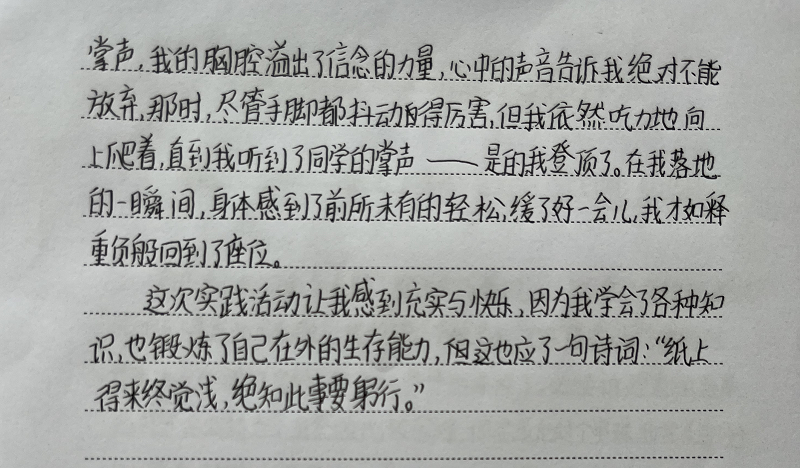 掌声,我的胸腔溢出了信念的力量,心中的声音告诉我绝对不能
放弃,那时,尽管手脚都抖动的得厉害,但我依然吃力地向
上爬着,直到我听到了同学的掌声——是的我登顶了。在我落地
的一瞬间,身体感到了前所未有的轻松,缓了好一会儿,我才如释
重负般回到了座位。
这次实践活动让我感到充实与快乐,因为我学会了各种知
识,也锻炼了自己在外的生存能力,但这也应了一句诗词:“纸上
得来终觉浅,绝知此事要躬行。”